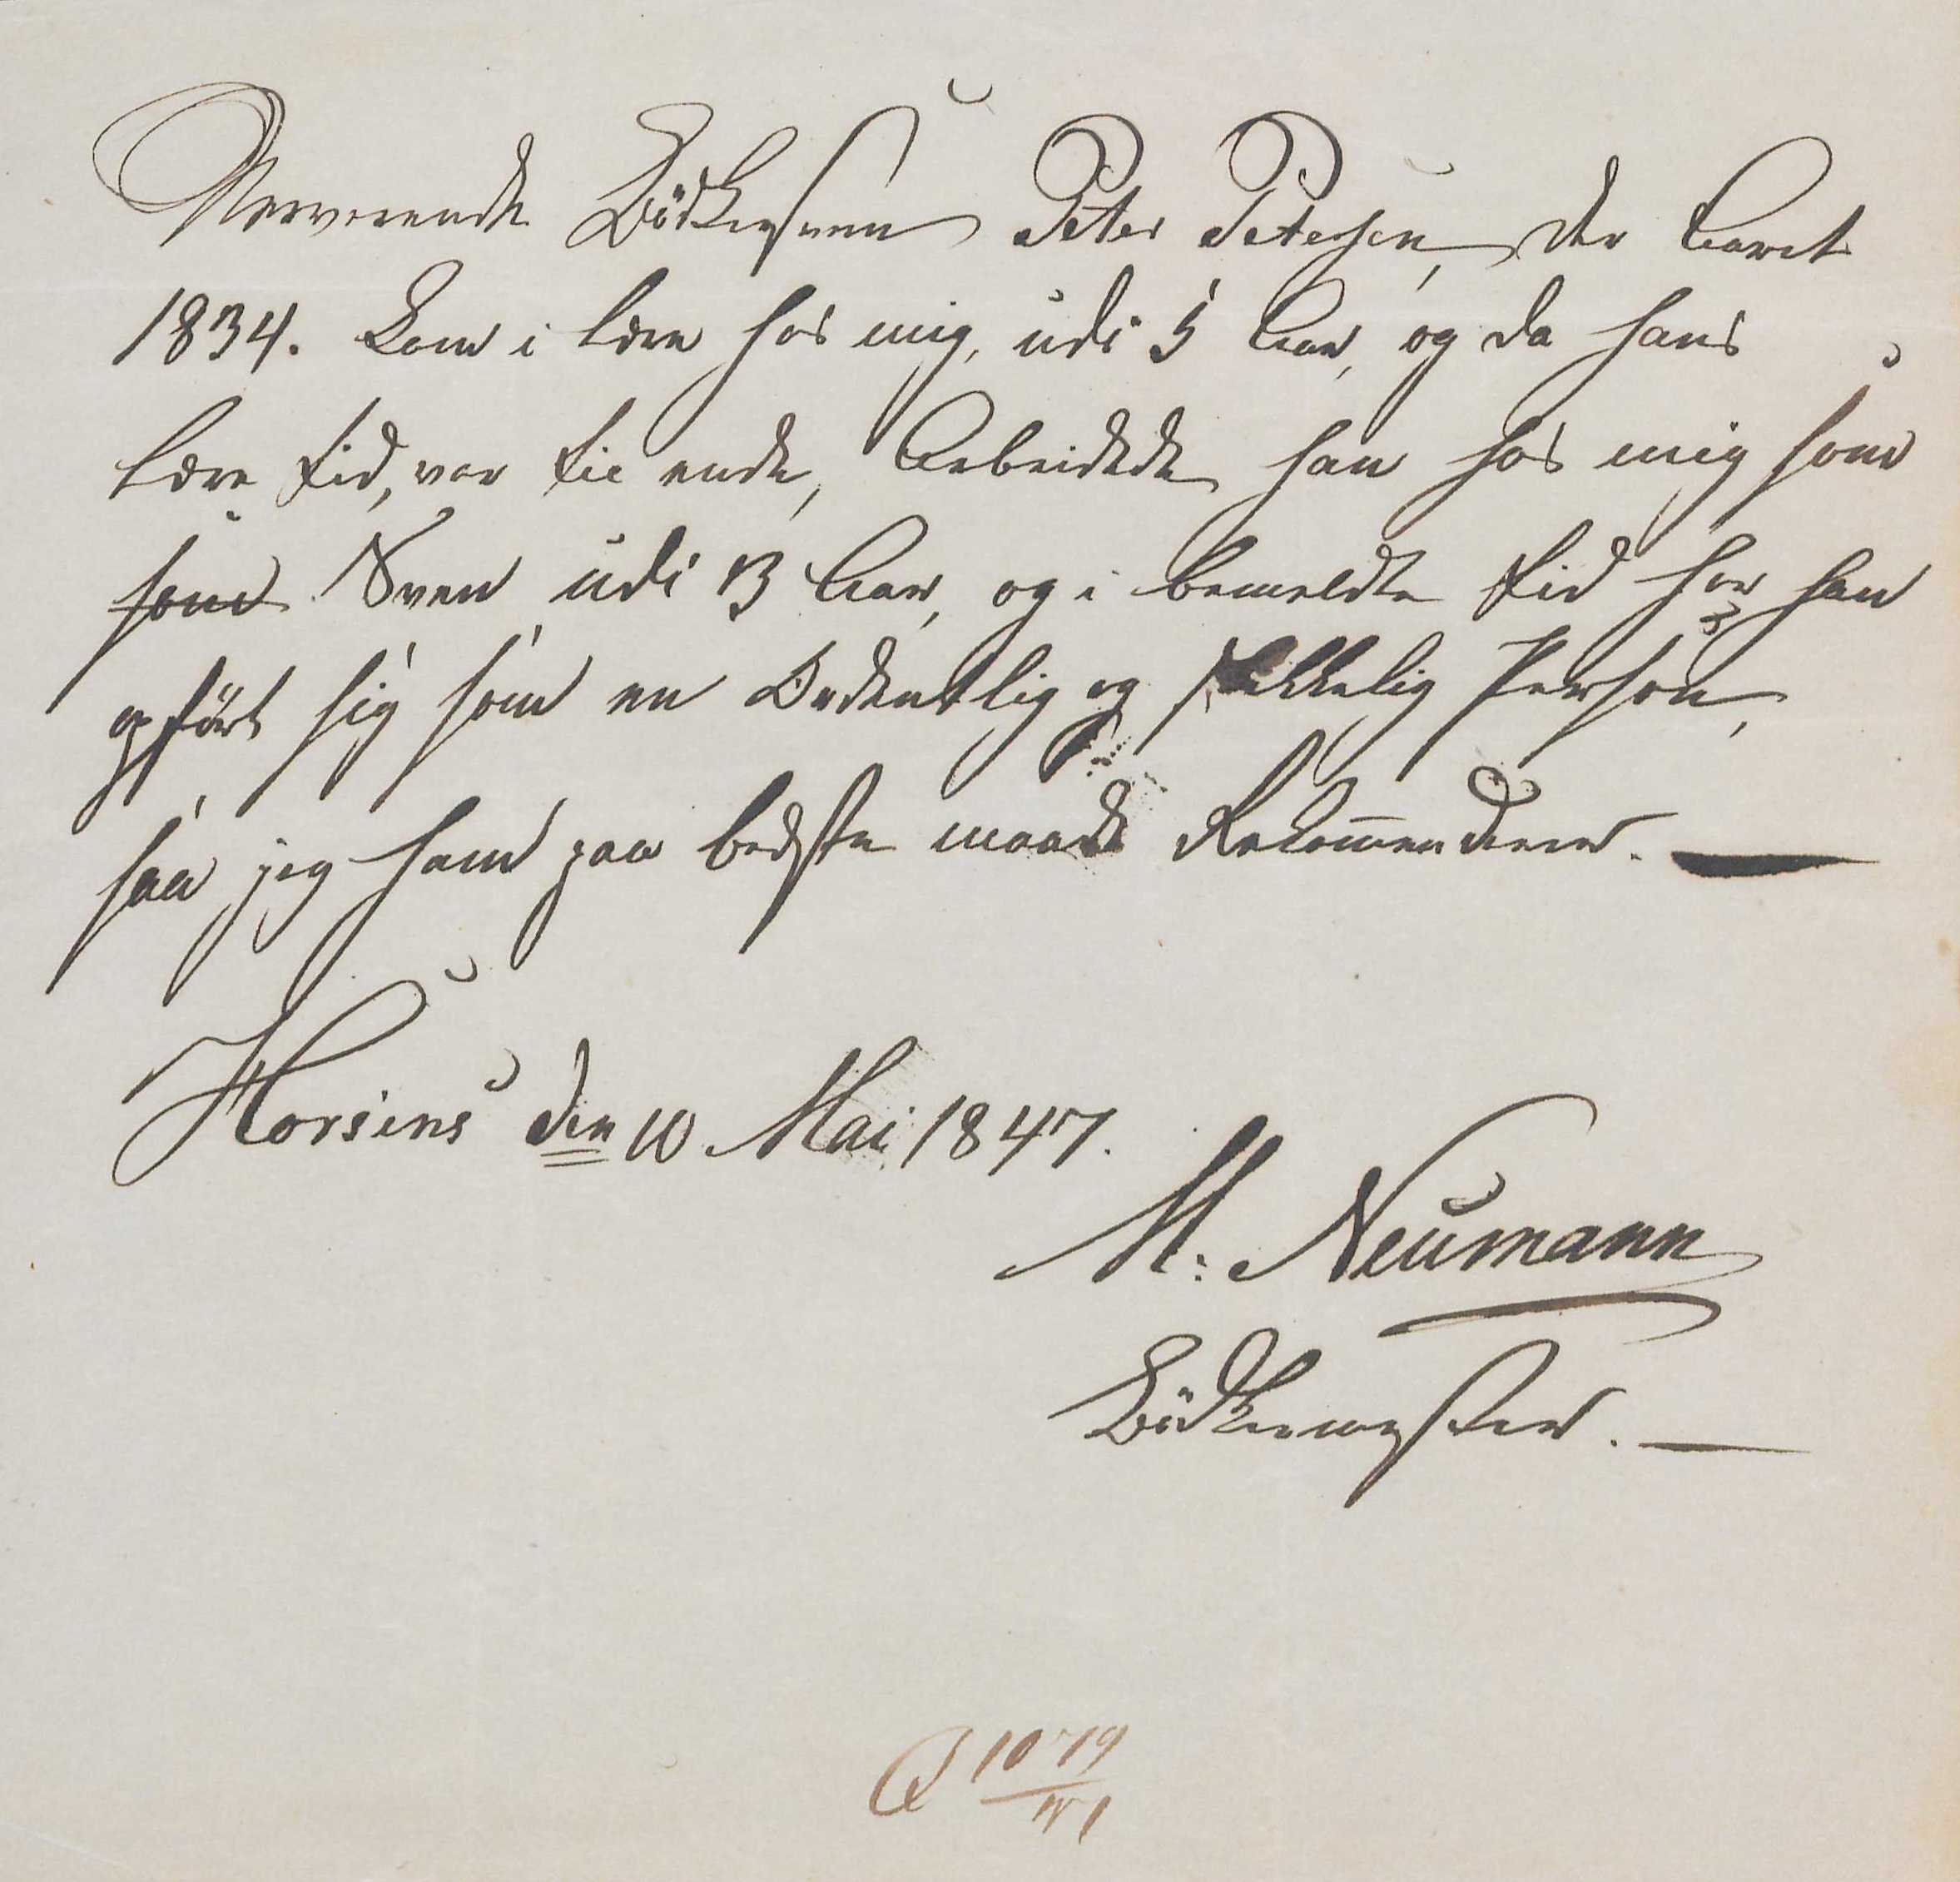 Nerverende Bödkersvenn Peter Petersen, der Aaret
1834. kom i lære hos mig, udi 5 Aar, og da hans
lære tid, var til ende, Arbeidede han hos mig som
som Sven udi 13 Aar, og i bemeldte tid har han
opfört sig som en Ordentlig og skikkelig Person,
saa jeg ham paa bedste maade Rekommenderer.
Horsens den 10 Mai 1847.
M: Neumann
Bödkermester.
1079